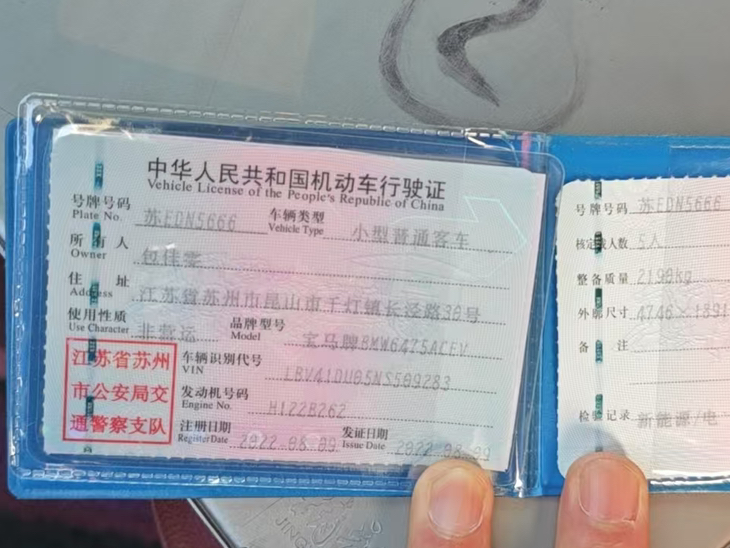 中华人民共和国机动车行驶证
Vehicle License of the People's Republic of China
号牌号码 苏EDN5666 车辆类型 小型普通客车
Plate No. Vehicle Type
所有人 包佳雯
Owner
住址 江苏省苏州市昆山市千灯镇长泾路38号
Address
使用性质 非营运 品牌型号 宝马牌BMW6475ACEV
Use Character Model
车辆识别代号
VIN
发动机号码 H122B262
Engine No.
注册日期 2022.08.09 发证日期 2022.08.09
Register Date Issue Date
江苏省苏州
市公安局交
通警察支队
号牌号码 苏EDN5666
核定载人数 5人
整备质量 2198kg
外廓尺寸 4746×1891
备注
检验记录 新能源/电